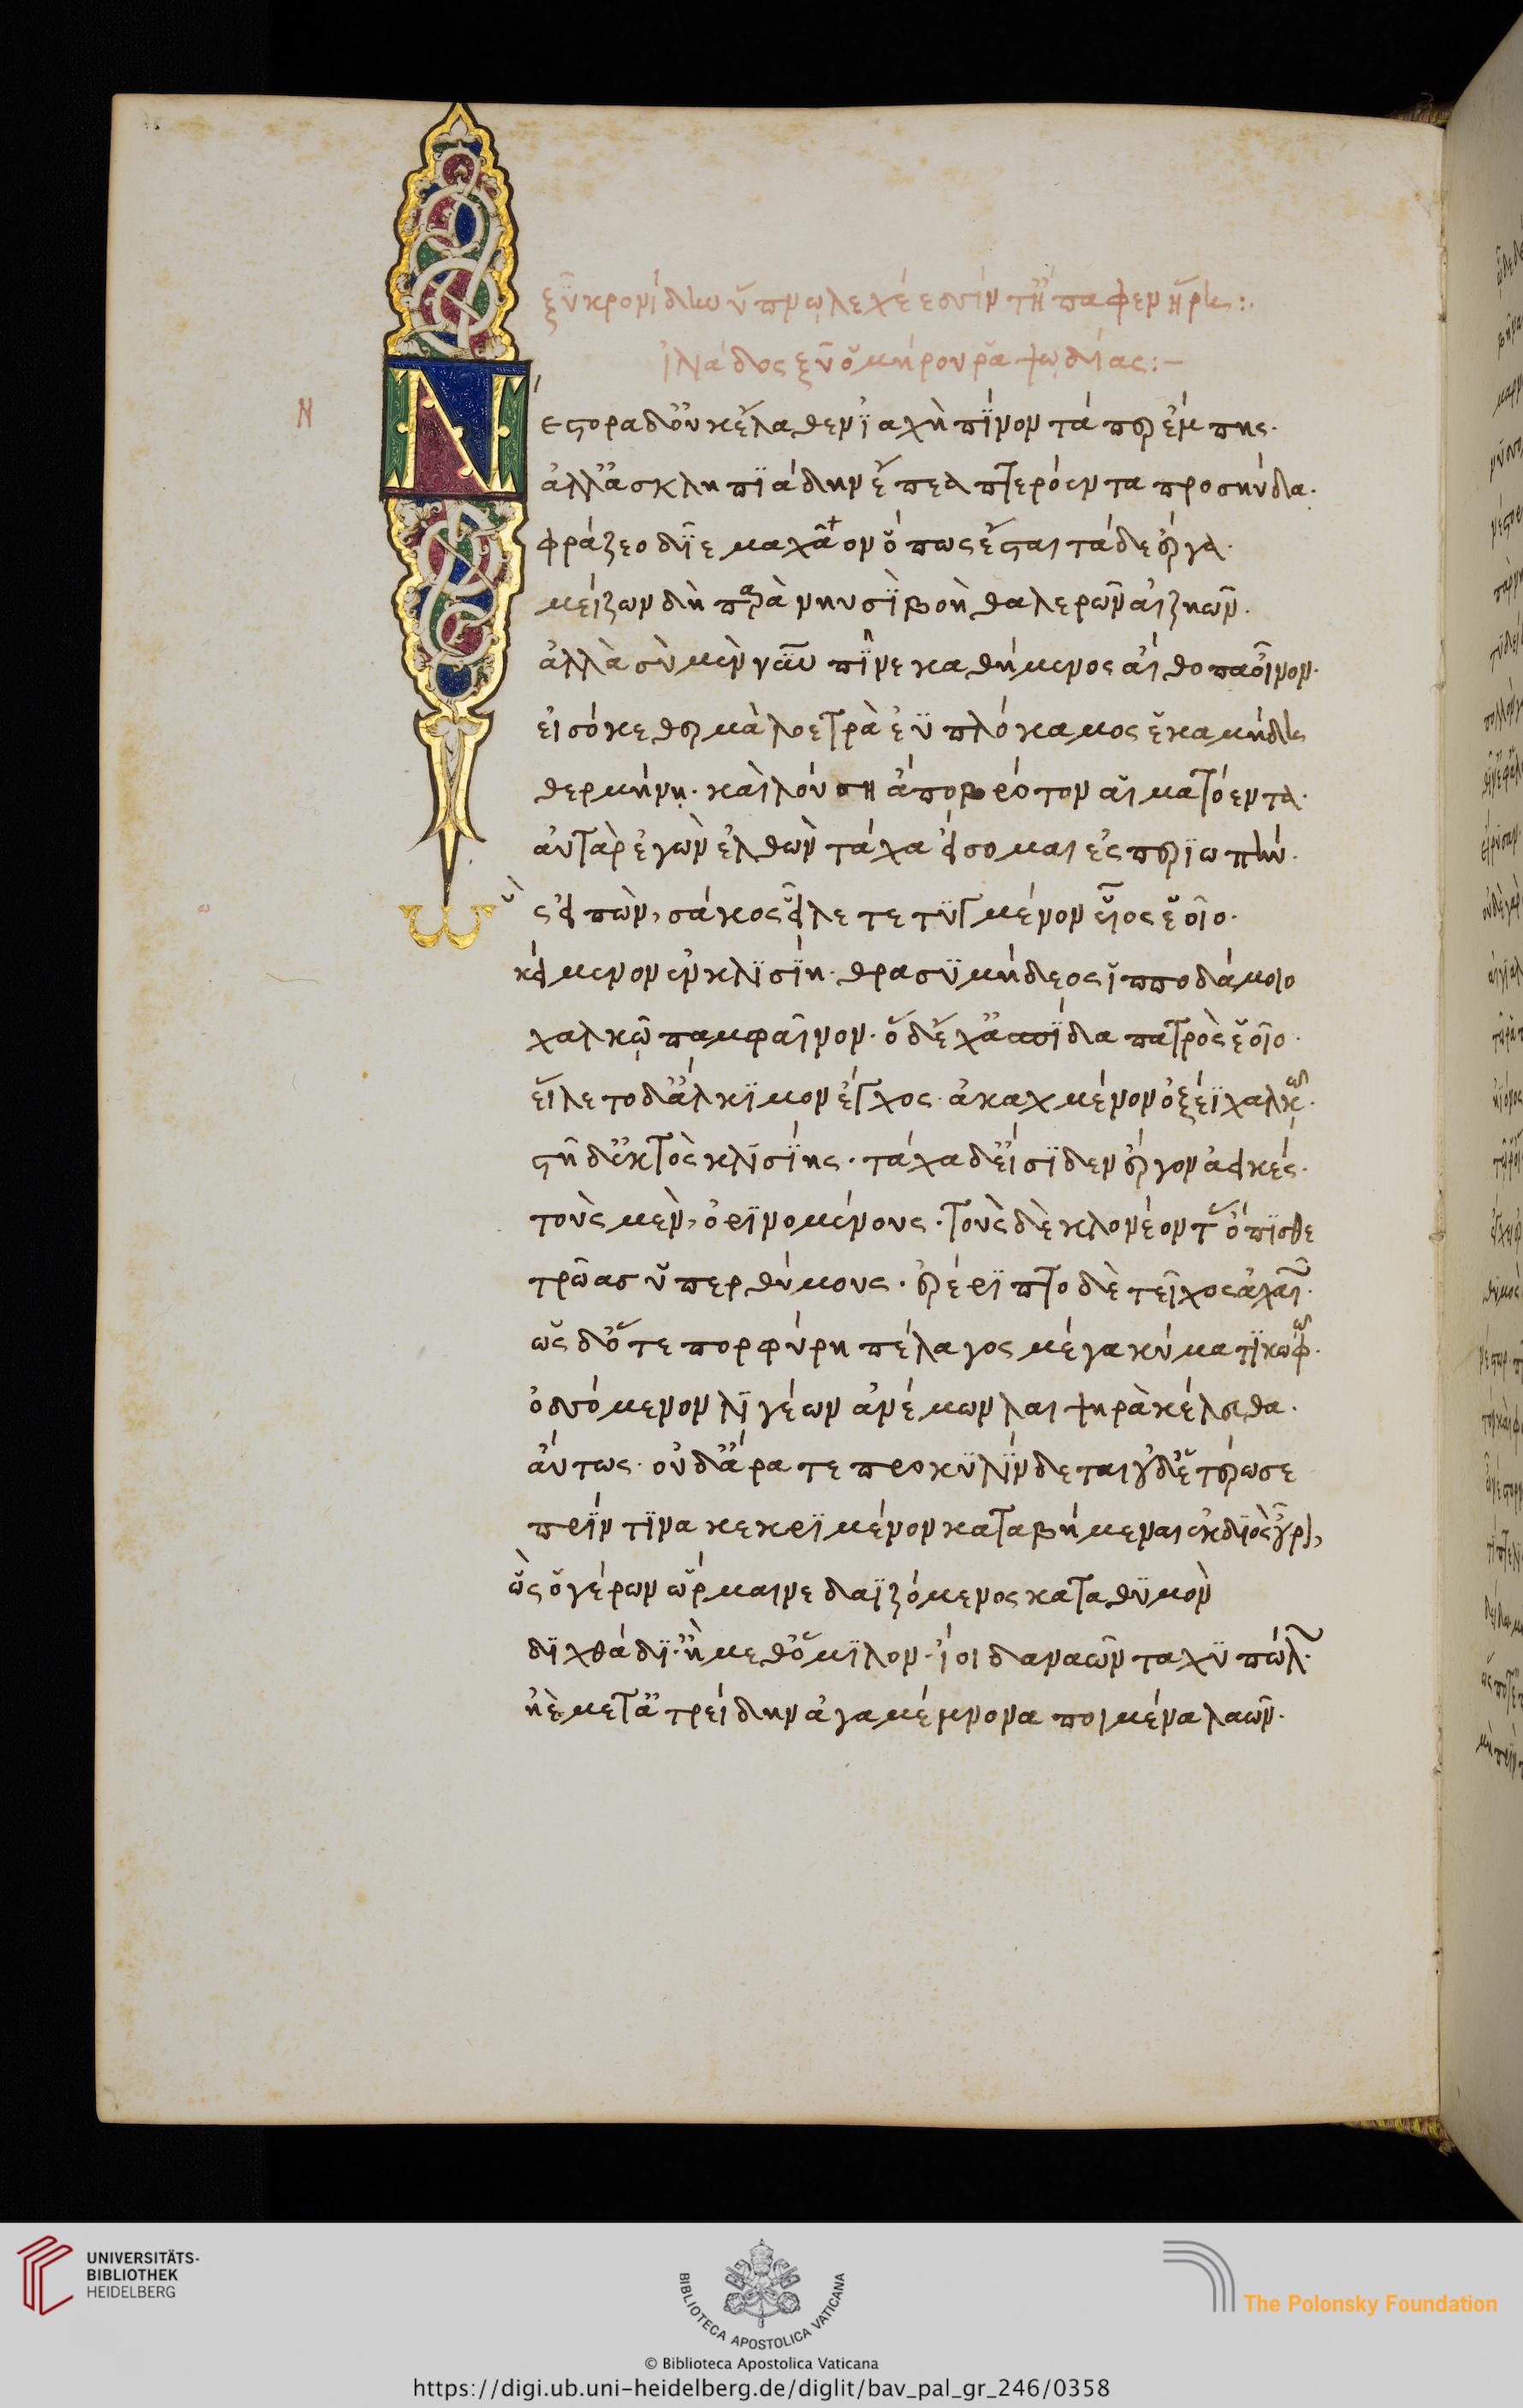 ξῦ κρονίδην ὕπνῳ λεχέεσσιν τῇ παφεν ἥρη:.
ἰλιάδος ξῦ ὁμήρου ῥαψῳδίας:–
Ν
Νέστορα δ' οὐκ ἔλαθεν ἰαχὴ πίνοντά περ ἔμπης·
ἀλλ' ἀσκληπιάδην ἔπεα πτερόεντα προσηύδα·
φράζεο δῖε μαχᾶον ὅπως ἔσται τάδε ἔργα·
μείζων δὴ παρὰ νηυσὶ βοὴ θαλερῶν αἰζηῶν·
ἀλλὰ σὺ μὲν νῦν πῖνε καθήμενος αἴθοπα οἶνον·
εἰσόκε θερμὰ λοετρὰ ἐϋπλόκαμος ἑκαμήδη
θερμήνῃ· καὶ λούσῃ ἄπο βρότον αἱματόεντα·
αὐτὰρ ἐγὼν ἐλθὼν τάχα εἴσομαι ἐς περιωπήν·
ὣς εἰπὼν, σάκος εἷλε τετυγμένον υἷος ἑοῖο·
κείμενον ἐν κλισίῃ· θρασυμήδεος ἱπποδάμοιο
χαλκῷ παμφαῖνον· ὁ δ' ἔχ' ἀσπίδα πατρὸς ἑοῖο·
εἵλετο δ' ἄλκιμον ἔγχος· ἀκαχμένον ὀξέϊ χαλκῷ·
στῆ δ' ἐκτὸς κλισίης· τάχα δ' εἴσιδεν ἔργον ἀεικές·
τοὺς μὲν, ὀρινομένους· τοὺς δὲ κλονέοντ' ὄπισθε
τρῶας ὑπερθύμους· ἐρέριπτο δὲ τεῖχος ἀχαιῶν·
ὡς δ' ὅτε πορφύρῃ πέλαγος μέγα κύματι κωφῷ·
ὀσσόμενον λιγέων ἀνέμων λαιψηρὰ κέλευθα·
αὔτως· οὐδ' ἄρα τε προκυλίνδεται οὐδ' ἑτέρωσε
πρίν τινα κεκριμένον καταβήμεναι ἐκ διὸς οὖρον,
ὣς ὁ γέρων ὥρμαινε δαϊζόμενος κατὰ θυμὸν
διχθάδι'· ἢ μεθ' ὅμιλον· ἴοι δαναῶν ταχυπώλων·
ἠὲ μετ' ἀτρείδην ἀγαμέμνονα ποιμένα λαῶν·
UNIVERSITÄTS-
BIBLIOTHEK
HEIDELBERG
BIBLIOTECA APOSTOLICA VATICANA
The Polonsky Foundation
© Biblioteca Apostolica Vaticana
https://digi.ub.uni-heidelberg.de/diglit/bav_pal_gr_246/0358